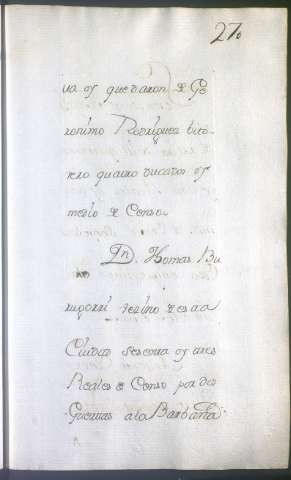 270
va q̃ quedaron de Ge
ronimo Rodriguez tito
lero quatro ducados y
medio de Censo
Dn. Thomas Bu
vezino de esta
Ciudad sesenta y tres
Reales de Censo por dos
Guertas a la Barbaña